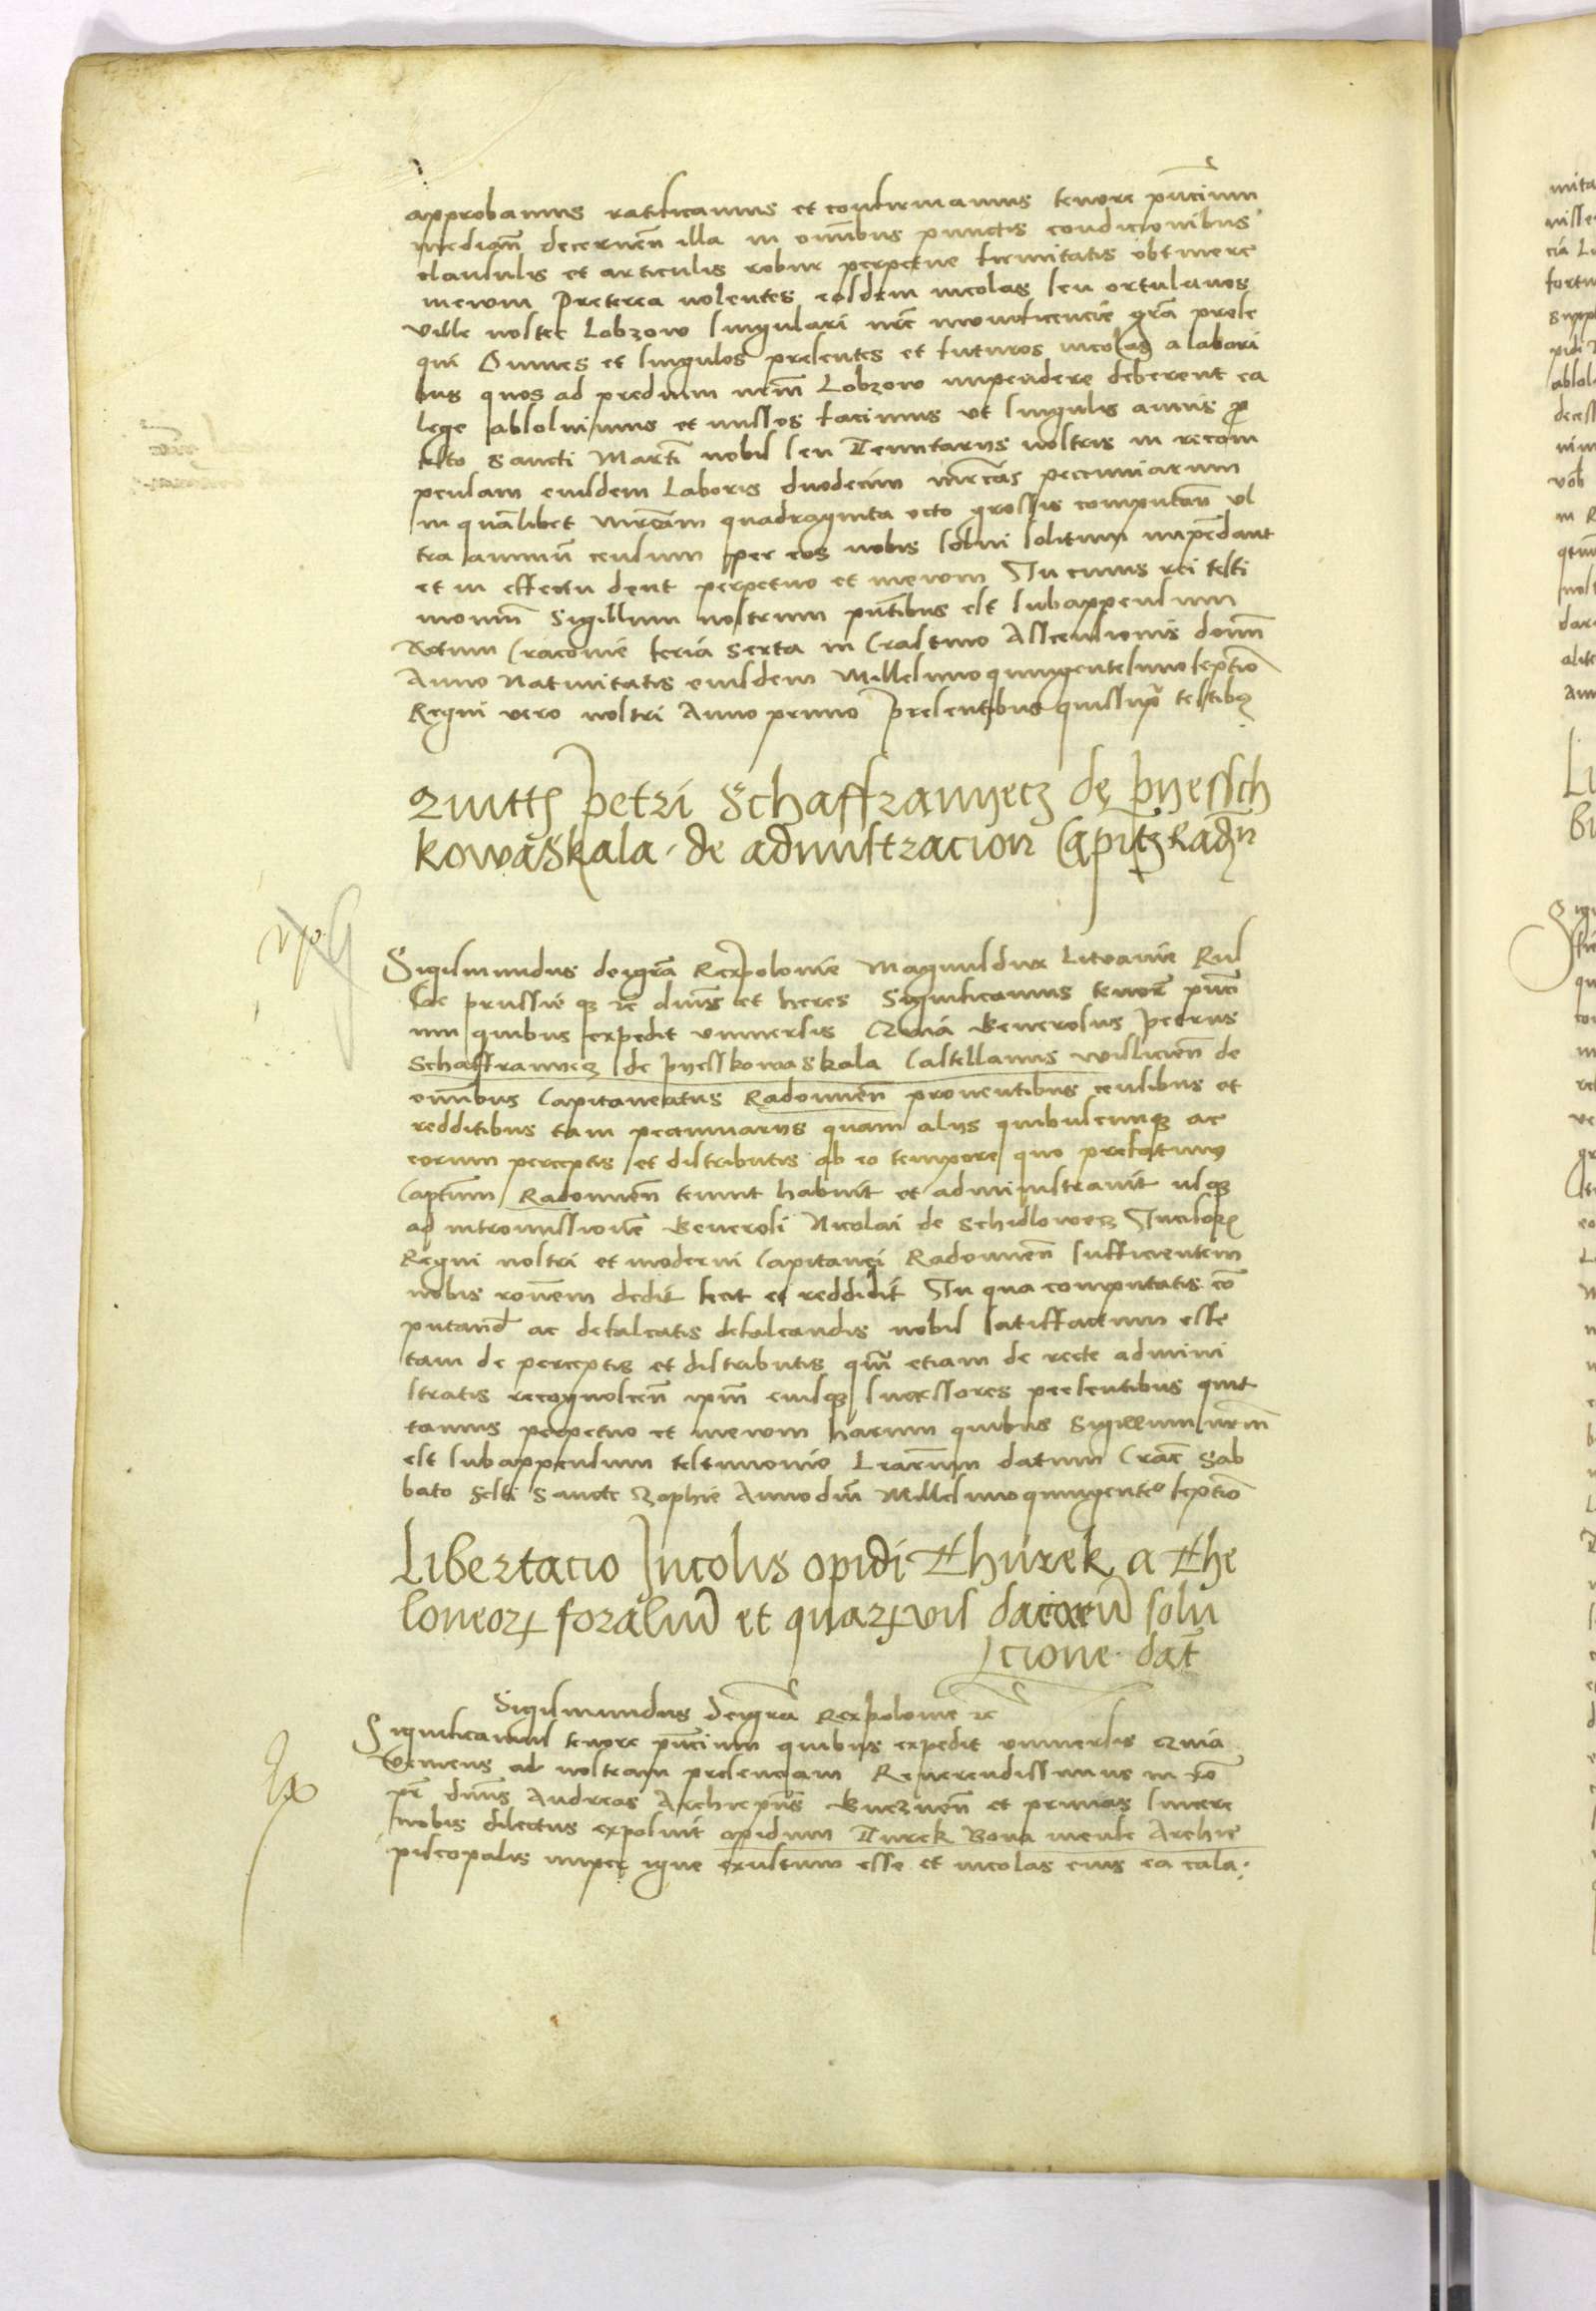 approbamus ratificamus et confirmamus tenore pñcium
mediañ decerneñ illa in omĩbus punctis condicionibus
clausulis et articulis robur perpetue firmitatis obtinere
inewm Preterea volentes eosdem incolas seu ortulanos
ville nostre Lobzow singulari nr̃e munificencie gr̃a prose
qui Omnes et singulos presentes et futuros incolas a labori
bus quos ad predium nr̃m Lobzow impendere deberent ea
lege absolvimus et missos facimus ut singulis annis p̱
festo Sancti Martĩ nobis seu Tenutarijs nostris in recom
pensam eiusdem Laboris duodecim mr̃cas pecuniarum
in quamlibet mr̃cam quadraginta octo grossis computañ ul
tra annuũ censum per eos nobis solvi solitum impẽdant
et in effectu dent perpetuo et inewm In cuius rei testi
moniũ Sigillum nostrum pñtibus est subappensum
Actum Cracovie feria Sexta in Crastino Ascensionis domĩ
Anno Nativitatis eiusdem Millesimoquingentesimoseptĩo
Regni vero nostri Anno primo Presentibus quissup̃ testibus
Quittʒ Petri Schaffranyecz de Pyessch
kowaskala de administracion Capitʒ Radoñ
Sigismundus deigr̃a RexPolonie Magnusdux Litvanie Rus
sie Prussie qʒ ⁊c̃ dñus et heres Significamus tenor̃ pñci
um quibus expedit universis Quia Generosus Petrus
Schaffranyecz de Pyesskowaskala Castellanus Wislicieñ de
omĩbus Capitaneatus Radomieñ proventibus censibus et
redditibus tam pecuniarijs quam alijs quibuscumqʒ ac
eorum perceptis et distributis ab eo tempore quo prefatum
Captũm Radomieñ tenuit habuit et administravit usqʒ
ad intromissionẽ Generosi Nicolai de Schidlowecz Incisorʒ
Regni nostri et moderni Capitanei Radomieñ sufficientem
nobis roñem dedit fecit et reddidit In qua computatis cõ
putand̃ ac defalcatis defalcandis nobis satisfactum esse
tam de perceptis et distributis qm̃ etiam de recte admini
stratis recognosceñ ipm̃ eiusqʒ successores presentibus quit
tamus perpetuo et inewm harum quibus Sigillum nr̃m
est subappensum testimonio Lr̃arum datum Crac̃ Sab
bato festi Sancte Zophie Annodñi Millesimoquingentºseptĩo
Libertacio Incolis opidi Thurek a The
loneorꝝ foraliũ et quarꝝvis daciorũ solu
cione dat̃
Sigismundus Deigr̃a RexPolonie ⁊c̃
Significamus tenore pñcium quibus expedit universis Quia
veniens ad nostram presenciam Reverendissimus in xõ
pr̃ dñus Andreas Archiep̃us Gnezneñ et primas sincere
nobis dilectus exposuit opidum Turek Bona mense Archie
piscopalis nuper igne exustum esse et incolas eius ea cala